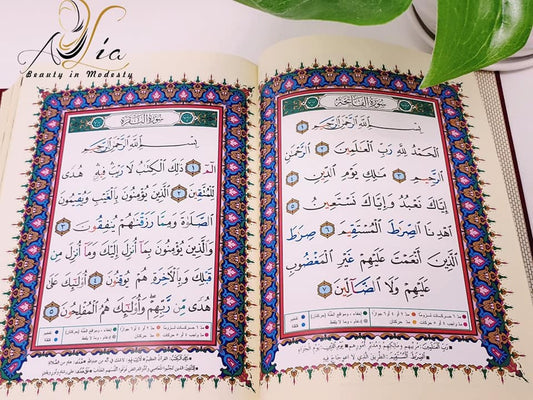 Alia
Beauty in Modesty
سُورَةُ الْفَاتِحَةِ
بِسْمِ اللَّهِ الرَّحْمَٰنِ الرَّحِيمِ ١
الْحَمْدُ لِلَّهِ رَبِّ الْعَالَمِينَ ٢ الرَّحْمَٰنِ
الرَّحِيمِ ٣ مَالِكِ يَوْمِ الدِّينِ ٤
إِيَّاكَ نَعْبُدُ وَإِيَّاكَ نَسْتَعِينُ ٥
اهْدِنَا الصِّرَاطَ الْمُسْتَقِيمَ ٦ صِرَاطَ
الَّذِينَ أَنْعَمْتَ عَلَيْهِمْ غَيْرِ الْمَغْضُوبِ
عَلَيْهِمْ وَلَا الضَّالِّينَ ٧
سُورَةُ الْبَقَرَةِ
بِسْمِ اللَّهِ الرَّحْمَٰنِ الرَّحِيمِ
الم ١ ذَٰلِكَ الْكِتَابُ لَا رَيْبَ فِيهِ هُدًى
لِّلْمُتَّقِينَ ٢ الَّذِينَ يُؤْمِنُونَ بِالْغَيْبِ وَيُقِيمُونَ
الصَّلَاةَ وَمِمَّا رَزَقْنَاهُمْ يُنفِقُونَ ٣
وَالَّذِينَ يُؤْمِنُونَ بِمَا أُنزِلَ إِلَيْكَ وَمَا أُنزِلَ مِن
قَبْلِكَ وَبِالْآخِرَةِ هُمْ يُوقِنُونَ ٤ أُولَٰئِكَ عَلَىٰ
هُدًى مِّن رَّبِّهِمْ وَأُولَٰئِكَ هُمُ الْمُفْلِحُونَ ٥